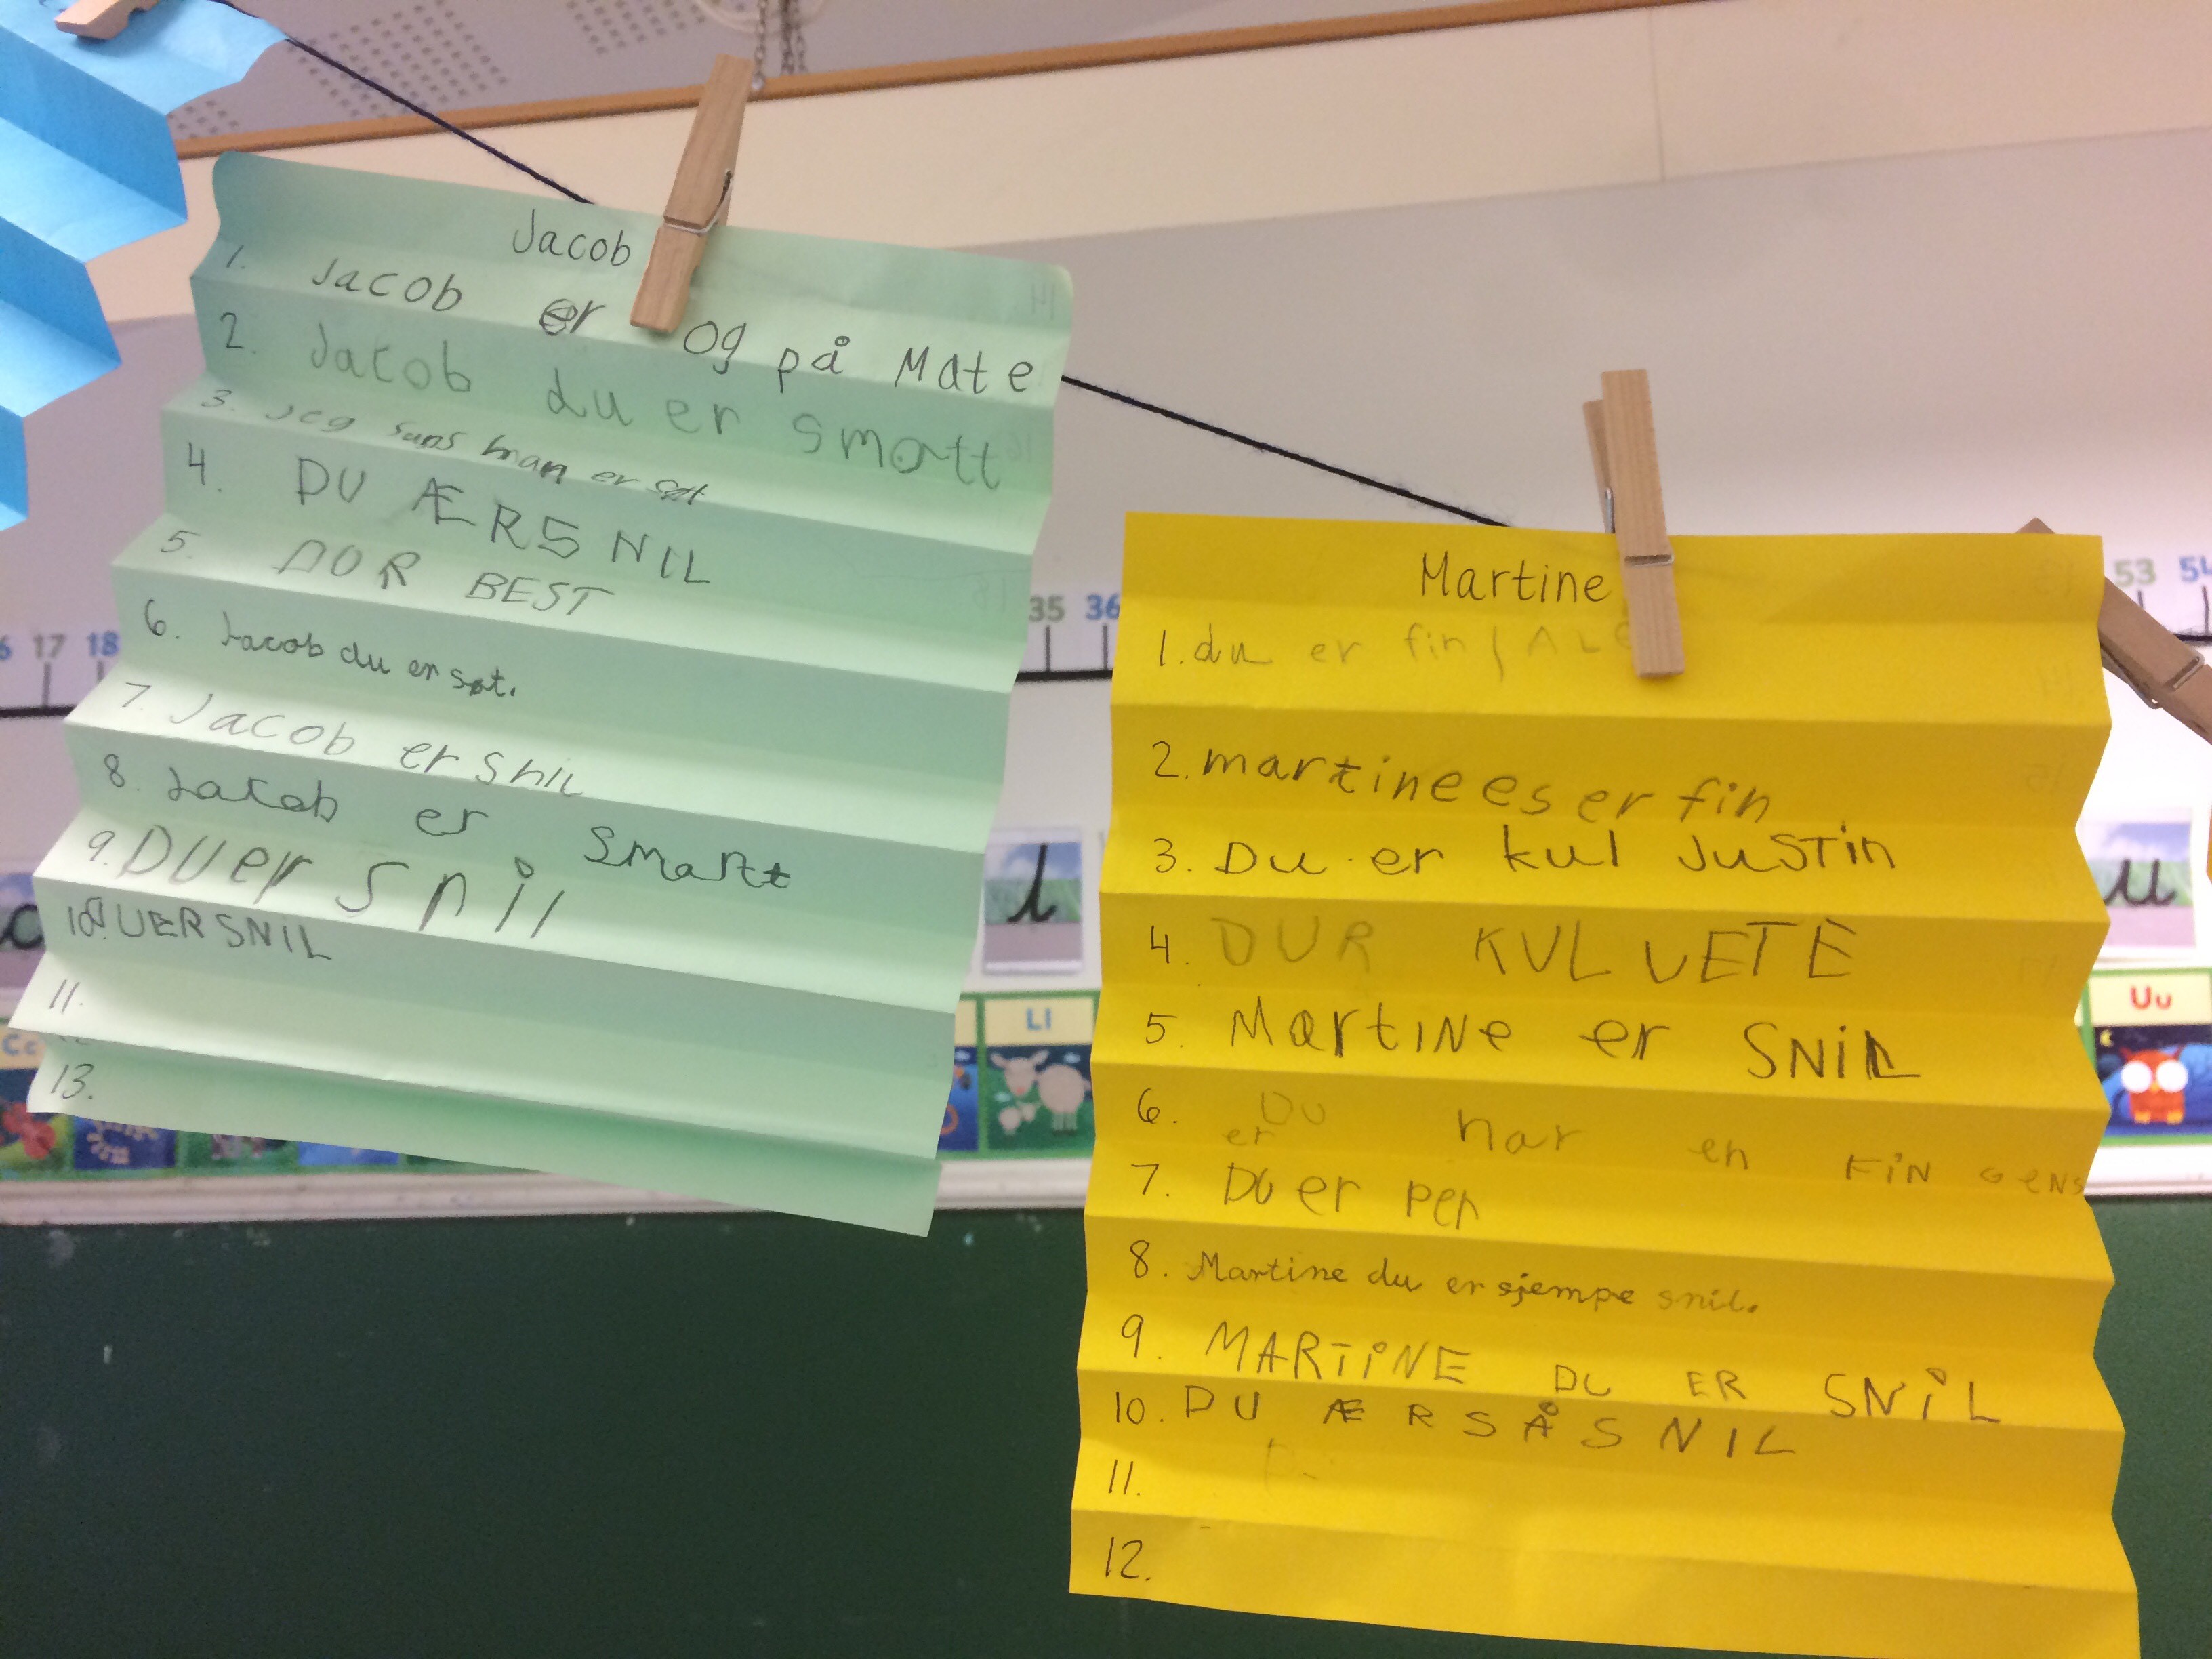 Jacob
1. Jacob er og på Mate
2. Jacob du er smatt
3. Jeg suns man er søt
4. DU ÆR SNIL
5. DOR BEST
6. Jacob du er søt.
7. Jacob er snil
8. Jacob er Smartt
9. DU er snil
10. dUER SNIL
11.
13.
Martine
1. du er fin
2. martine es er fin
3. Du er kul JuSTin
4. DUR KUL VETE
5. MartiNe er SNiL
6. Du har en FiN GeNS
er
7. DU er pen
8. Martine du er sjempe snil.
9. MARTiNE DU ER SNiL
10. DU ÆR SÅ SNIL
11.
12.
17 18
35 36
53 54
l
u
Cc
Ll
Uu